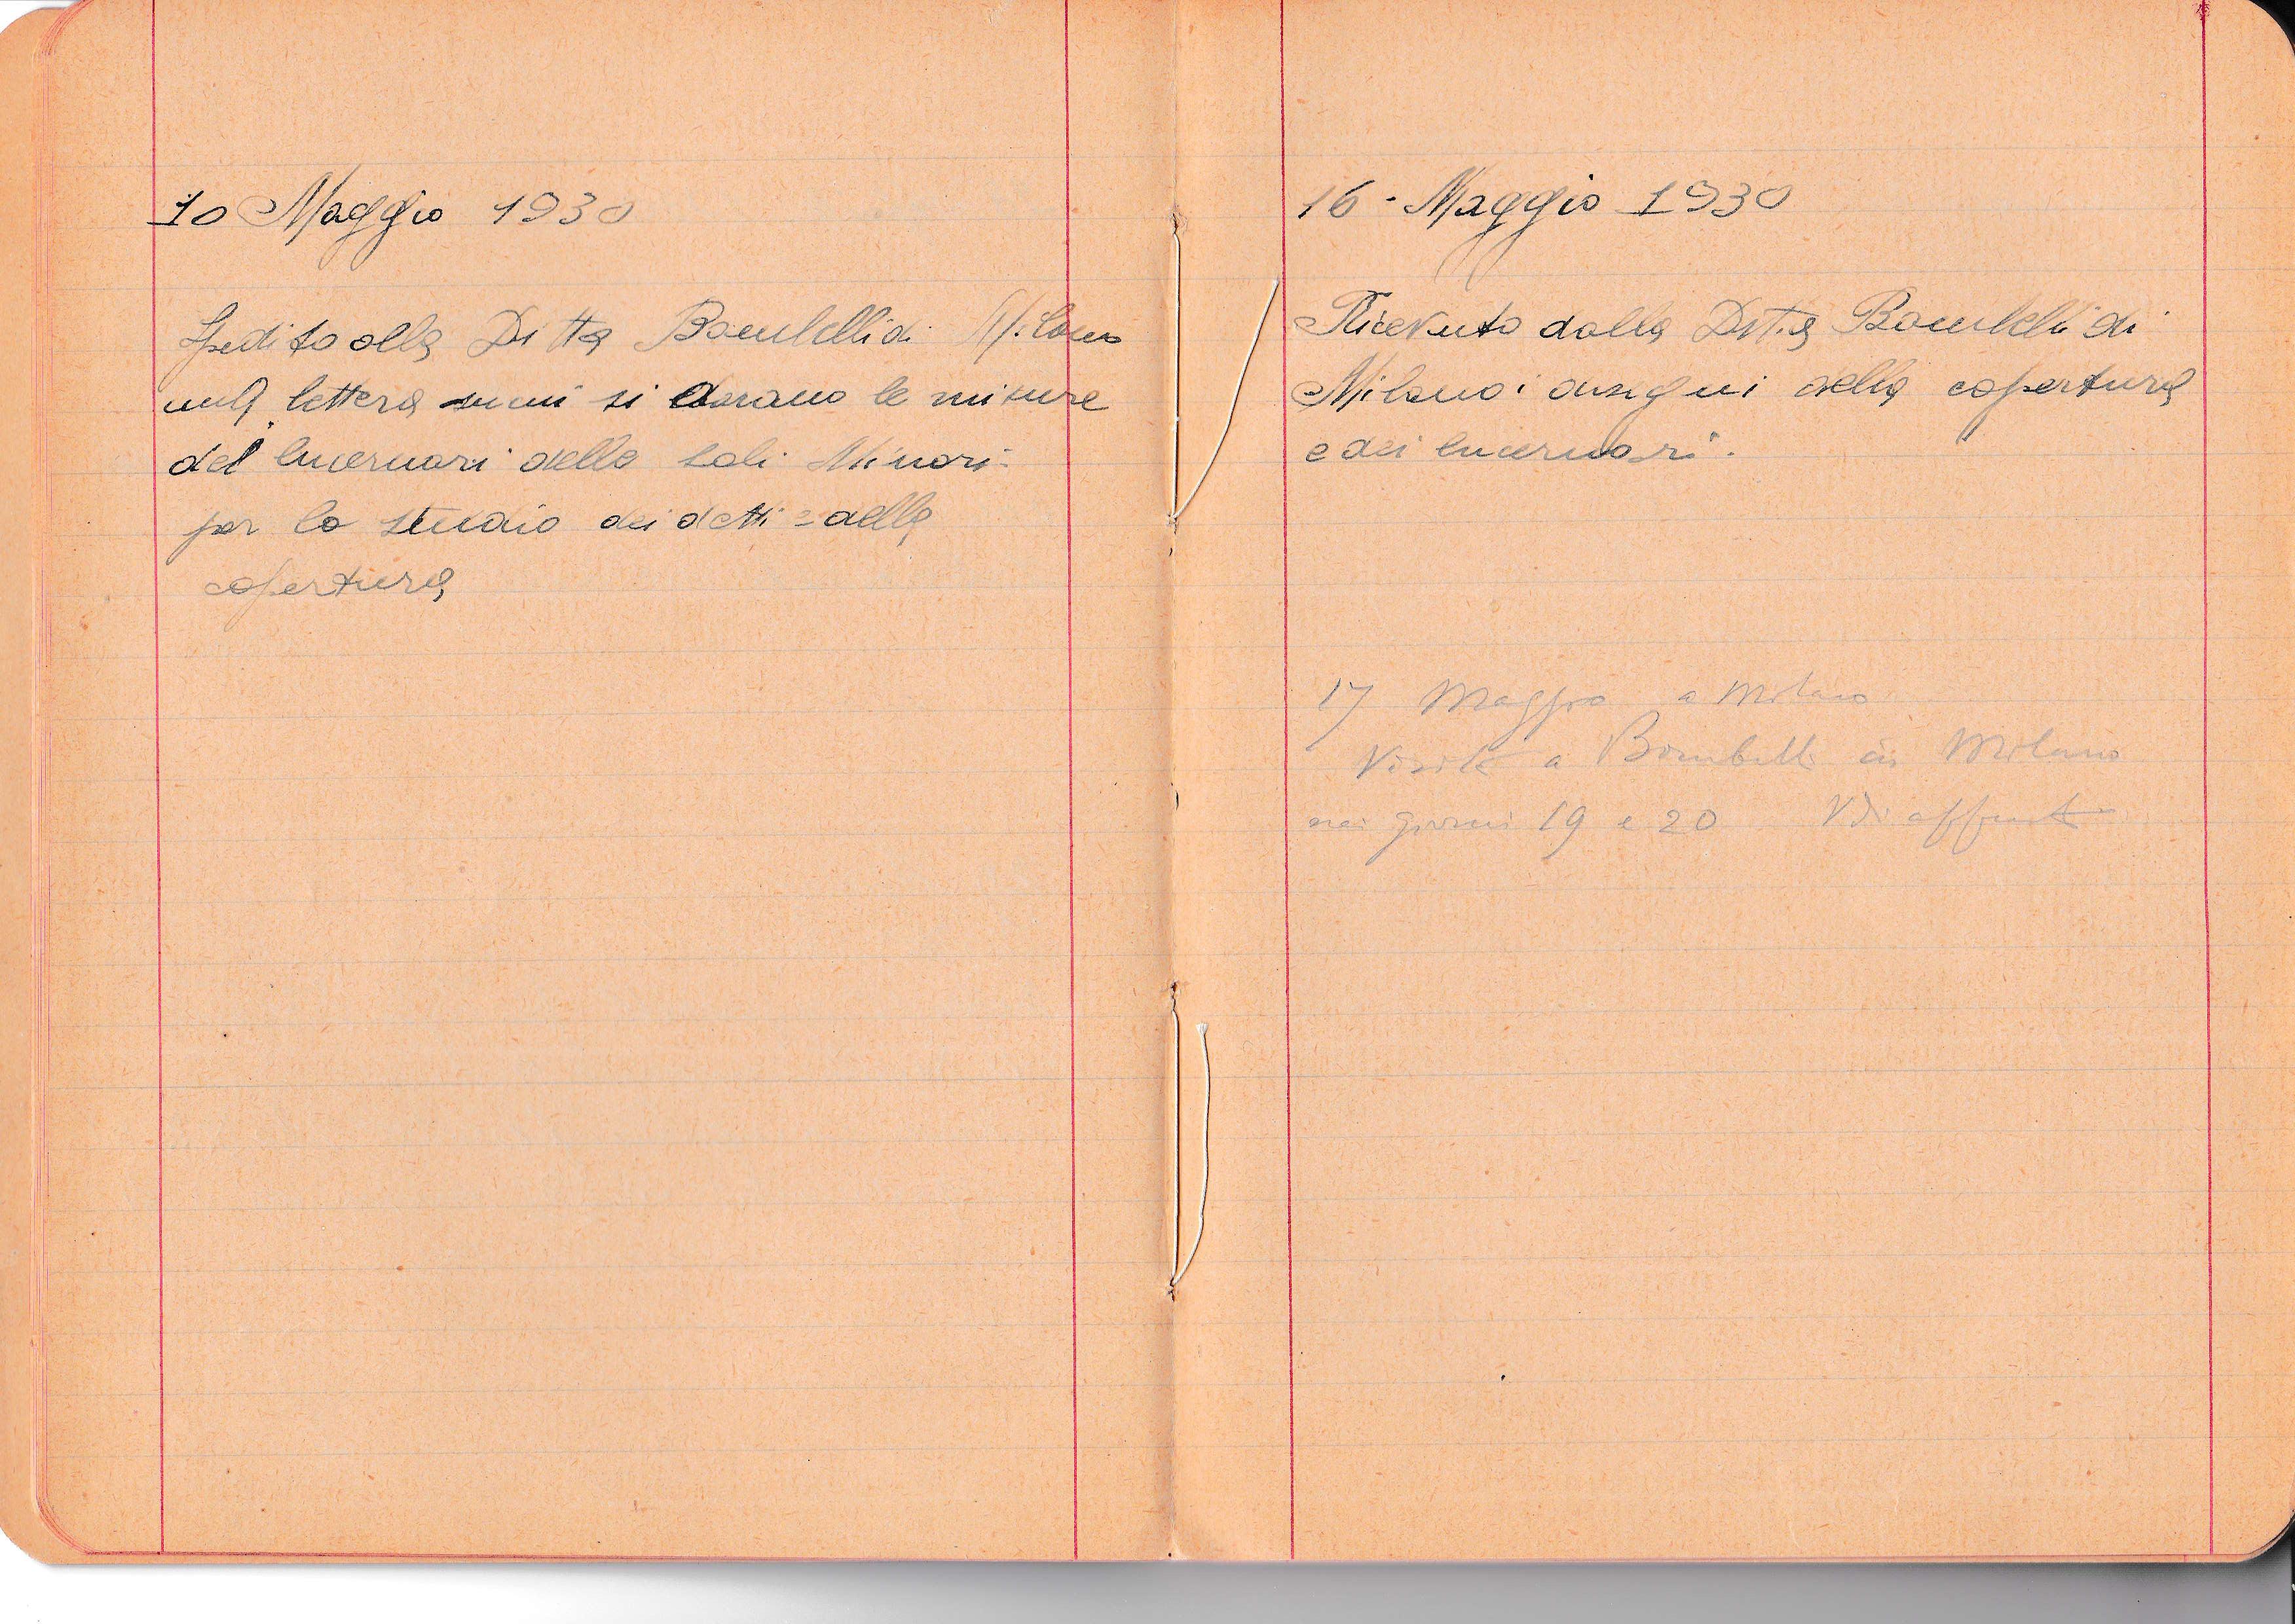 10 Maggio 1930
Spedito alla Ditta Bombelli di Milano
una lettera in cui si davano le misure
dei lucernari delle sali Minori
per lo studio dei detti e della
copertura
16 - Maggio 1930
Ricevuto dalla Ditta Bombelli di
Milano i disegni della copertura
e dei lucernari.
17 Maggio a Milano
Visita a Bombelli in Milano
nei giorni 19 e 20 Vdi